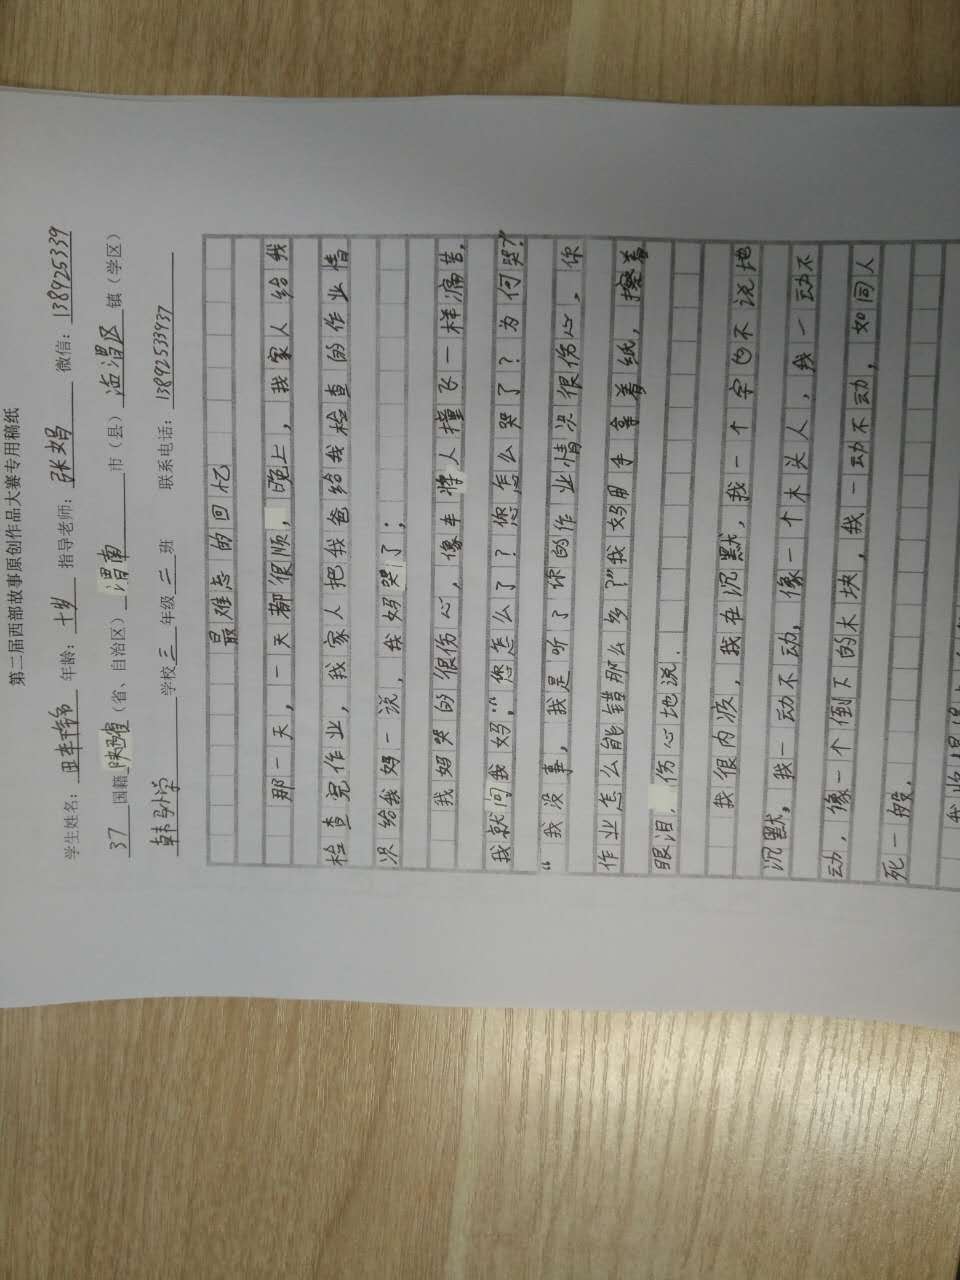 第二届西部故事原创作品大赛专用稿纸
学生姓名: 年龄: 十岁 指导老师: 张娟 微信: 138925339
37 国籍 陕西省 (省、自治区) 渭南 市（县） 临渭区 镇（学区）
学校 三 年级 二 班 联系电话: 13892533937
最难忘的回忆
那一天，一天都很顺，晚上，我家人给我
检查完作业，我家人把我爸给我检查的作业情
况给我妈一说，我妈哭了；
我妈哭的很伤心，像车将人撞飞一样痛苦。
我就问我妈:“您怎么了？您怎么哭了？为何哭？”
“我没事，我是听了你的作业情况很伤心，你
作业怎么能错那么多？”我妈用手拿着纸，擦着
眼泪，伤心地说.
我很内疚，我在沉默，我一个字也不说地
沉默。我一动不动，像一个木头人，我一动不
动，像一个倒下的木块，我一动不动，如同人
死一般.